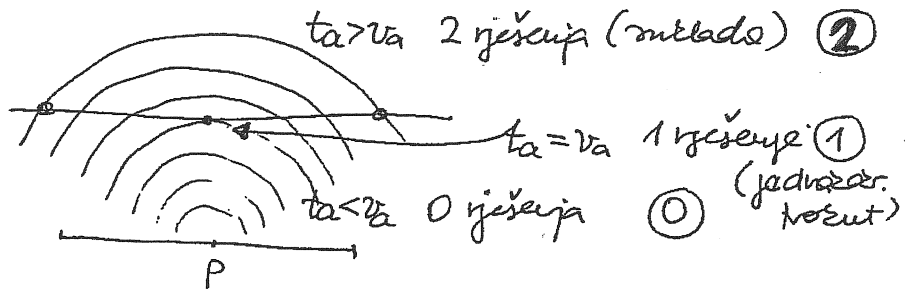 ta>va 2 rješenja (nikada) ②
ta=va 1 rješenje ①
(jednakokr.
trokut)
ta<va 0 rješenja ⓪
P